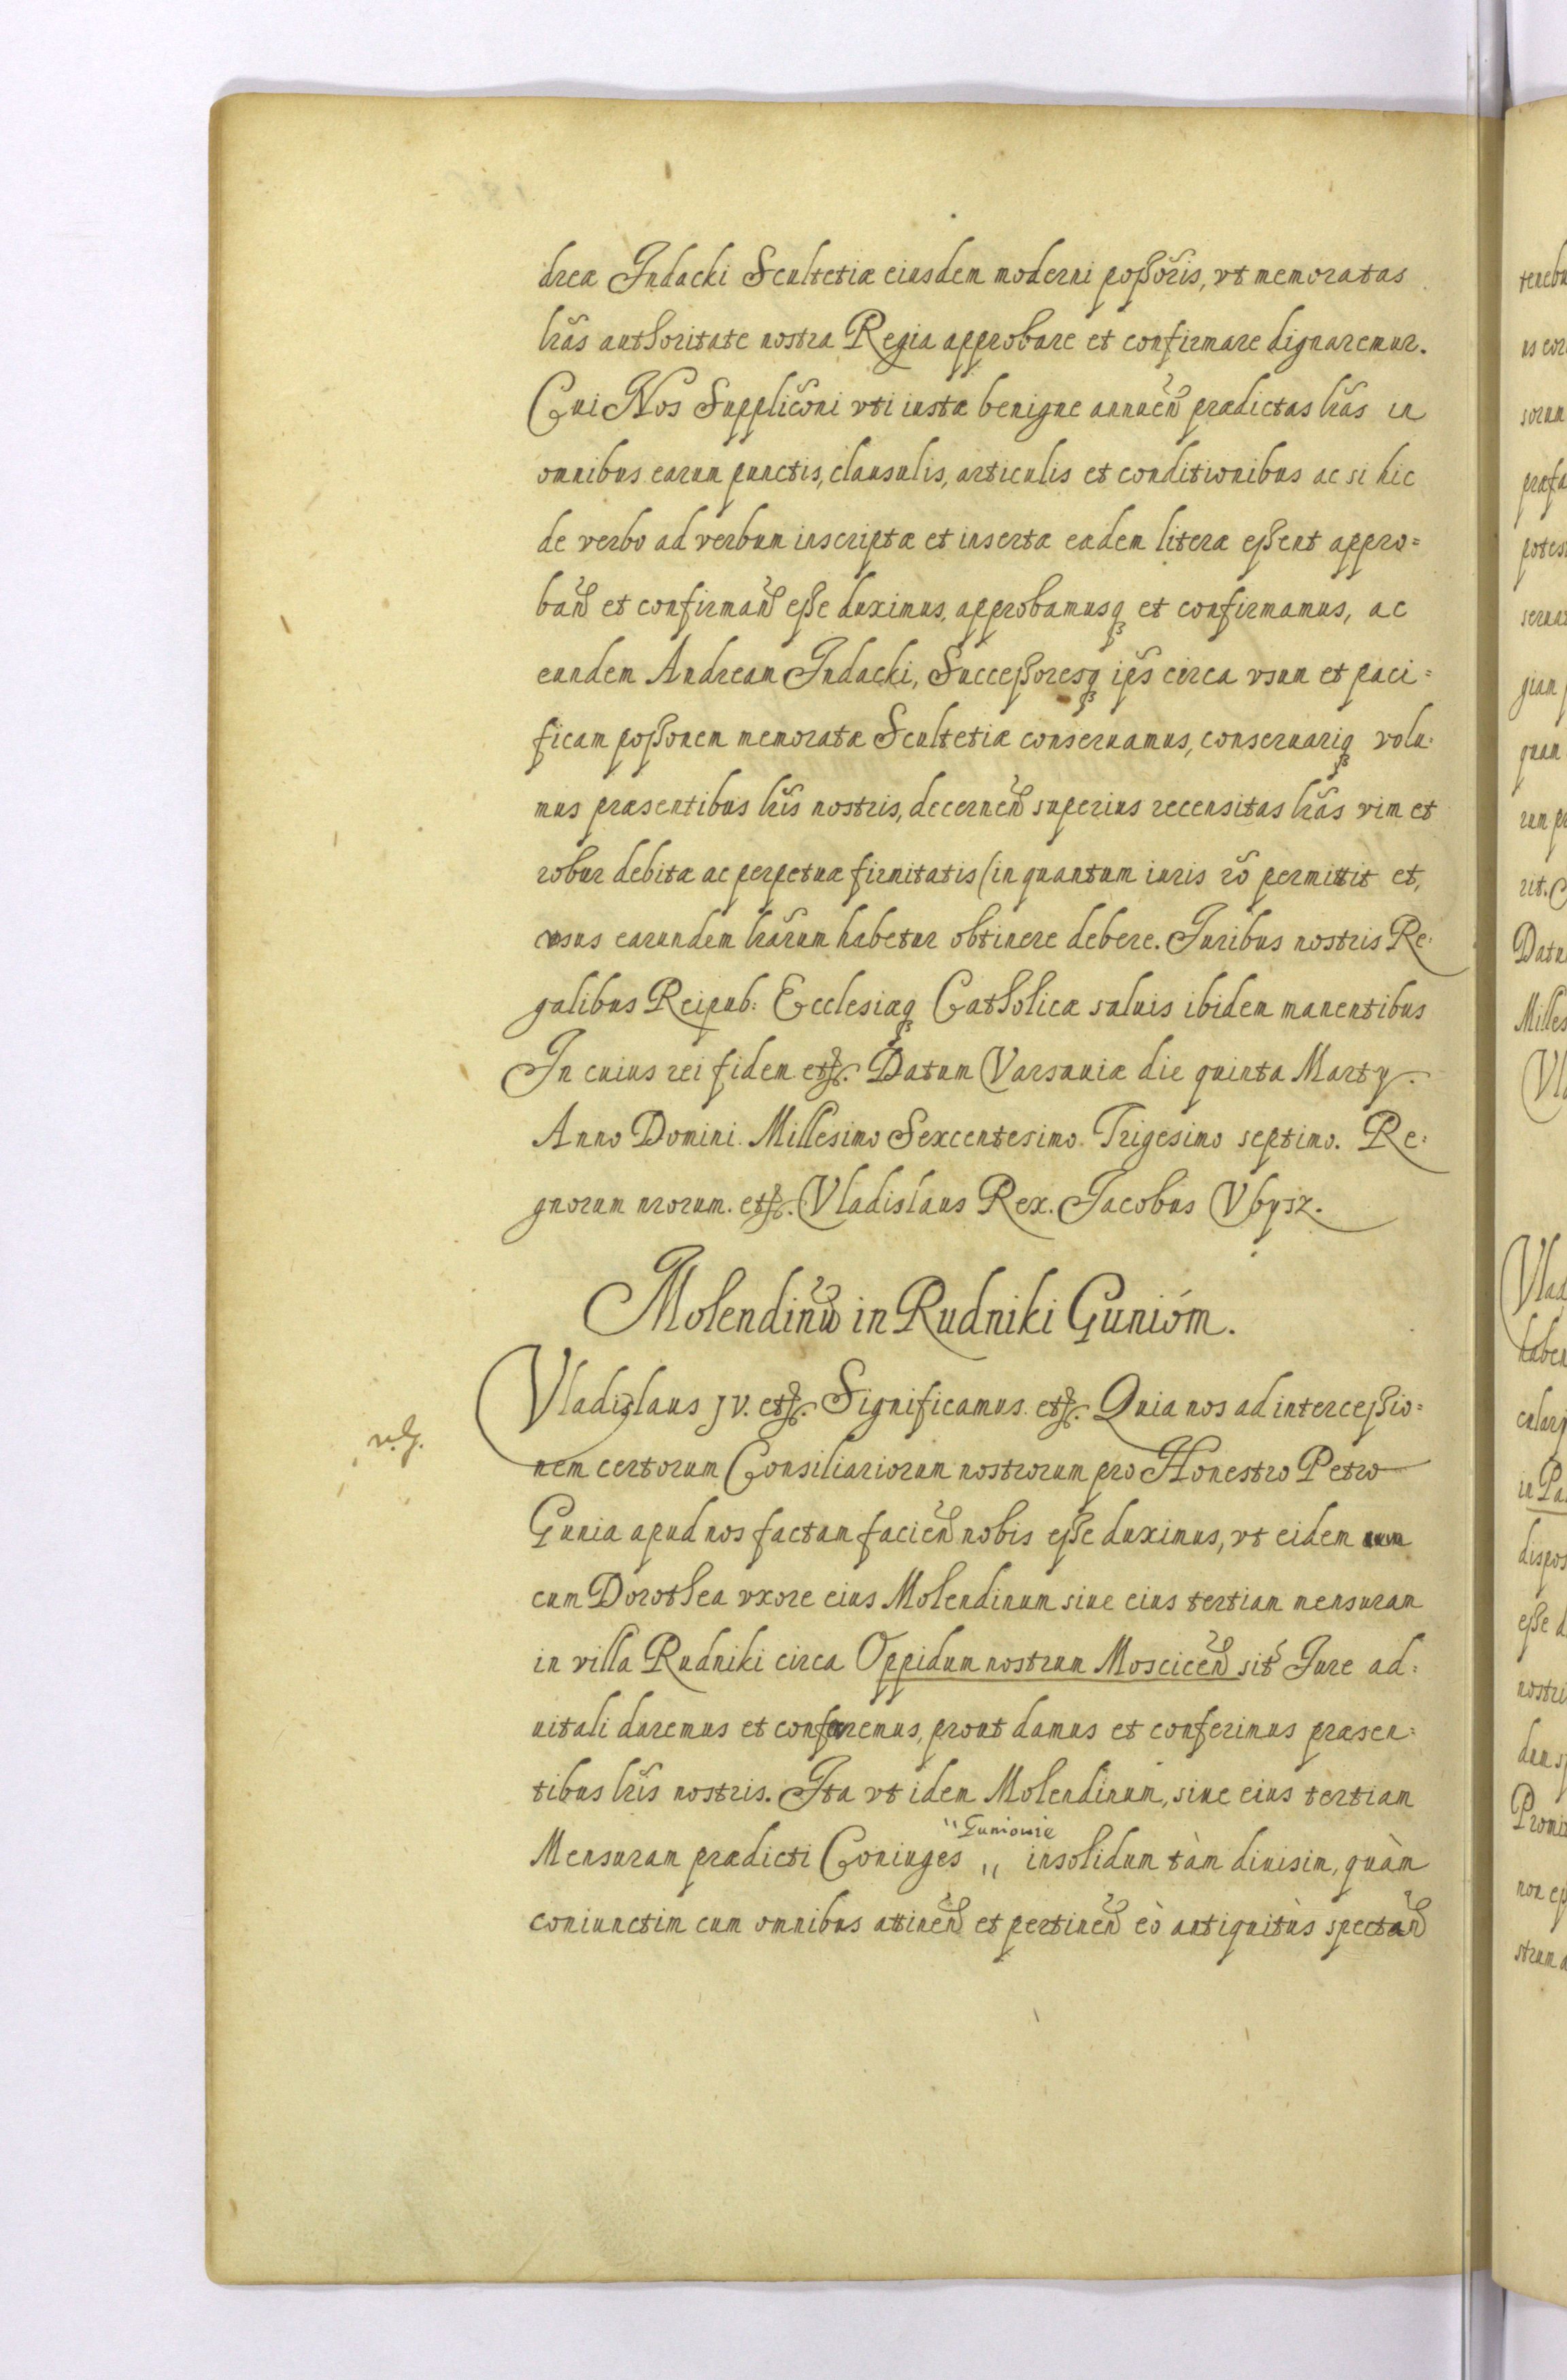 dreæ Judacki Scultetiæ eiusdem moderni poßoris, vt memoratas
lras authoritate nostra Regia approbare et confirmare dignaremur.
Cui Nos Suppliconi vti iustæ benigne annuen prædictas lras in
omnibus earum punctis, clausulis, articulis et conditionibus ac si hic
de verbo ad verbum inscriptæ et insertæ eædem literæ eßent appro=
ban et confirman eße duximus, approbamusq et confirmamus, ac
eundem Andream Judacki, Succeßoresq ips circa vsum et paci=
ficam poßonem memoratæ Scultetiæ conseruamus, conseruariq volu=
mus præsentibus lris nostris, decernen superius recensitas lras vim et
robur debitæ ac perpetuæ firmitatis (in quantum iuris ro permittit et,
vsus earundem lrarum habetur obtinere debere. Juribus nostris Re=
galibus Reipub: Ecclesiæq Catholicæ saluis ibidem manentibus
In cuius rei fidem etc. Datum Varsauiæ die quinta Marty.
Anno Domini Millesimo Sexcentesimo Trigesimo septimo. Re=
gnorum nrorum. etc. Vladislaus Rex. Jacobus Vbysz.
Molendinu in Rudniki Gunióm.
Vladislaus JV. etc. Significamus etc. Quia nos ad interceßio=
nem certorum Consiliariorum nostrorum pro Honesto Petro
Gunia apud nos factam facien nobis eße duximus, vt eidem
cum Dorothea vxore eius Molendinum siue eius tertiam mensuram
in villa Rudniki circa Oppidum nostrum Moscicen sit Jure ad=
uitali daremus et conferemus, prout damus et conferimus præsen=
tibus lris nostris. Ita vt idem Molendinum, siue eius tertiam
"Guniowie
Mensuram prædicti Coniuges " insolidum tàm diuisim, quàm
coniunctim cum omnibus attinen et pertinen eò antiquitùs spectan